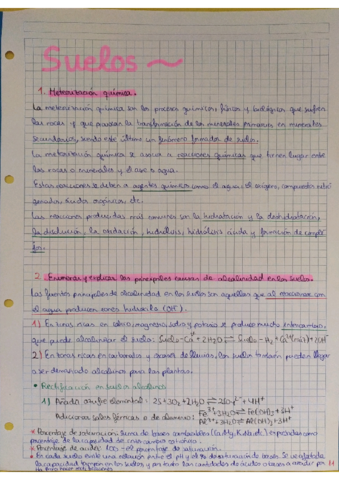 Suelos ~
1. Meteorización química.
La meteorización química son los procesos químicos, físicos y biológicos que sufren
las rocas y que provocan la transformación de los minerales primarios en minerales
secundarios, siendo este último un fenómeno formador de suelos.
La meteorización química se asocia a reacciones químicas que tienen lugar entre
las rocas o minerales y el aire o agua.
Estas reacciones se deben a agentes químicos como el agua, el oxígeno, compuestos
ácidos orgánicos, etc.
Las reacciones producidas más comunes son la hidratación y la deshidratación,
la disolución, la oxidación, hidrólisis, hidrólisis ácida y formación de
2. Enumerar y explicar las principales causas de alcalinidad en los suelos.
Las fuentes principales de alcalinidad en los suelos son aquellas que al reaccionar con
el agua producen iones hidroxilo (OH⁻).
1) En zonas ricas en calcio, magnesio, sodio y potasio se produce mucho intercambio,
que puede alcalinizar el suelo:
2) En zonas ricas en carbonato y escasez de lluvias. Los suelos también pueden llegar
a ser demasiado alcalinos para las plantas.
• Rectificación en suelos alcalinos
1) Añadir azufre elemental:
Adicionar sales férricas o de aluminio:
* Porcentaje de saturación: Suma de bases
porcentaje de la capacidad de
* Porcentaje de acidez: 100 - el porcentaje de saturación.
* En cada suelo existe una relación entre el pH y el % de saturación de bases.
la capacidad tampón en los suelos y por tanto las cantidades de ácidos o bases a añadir